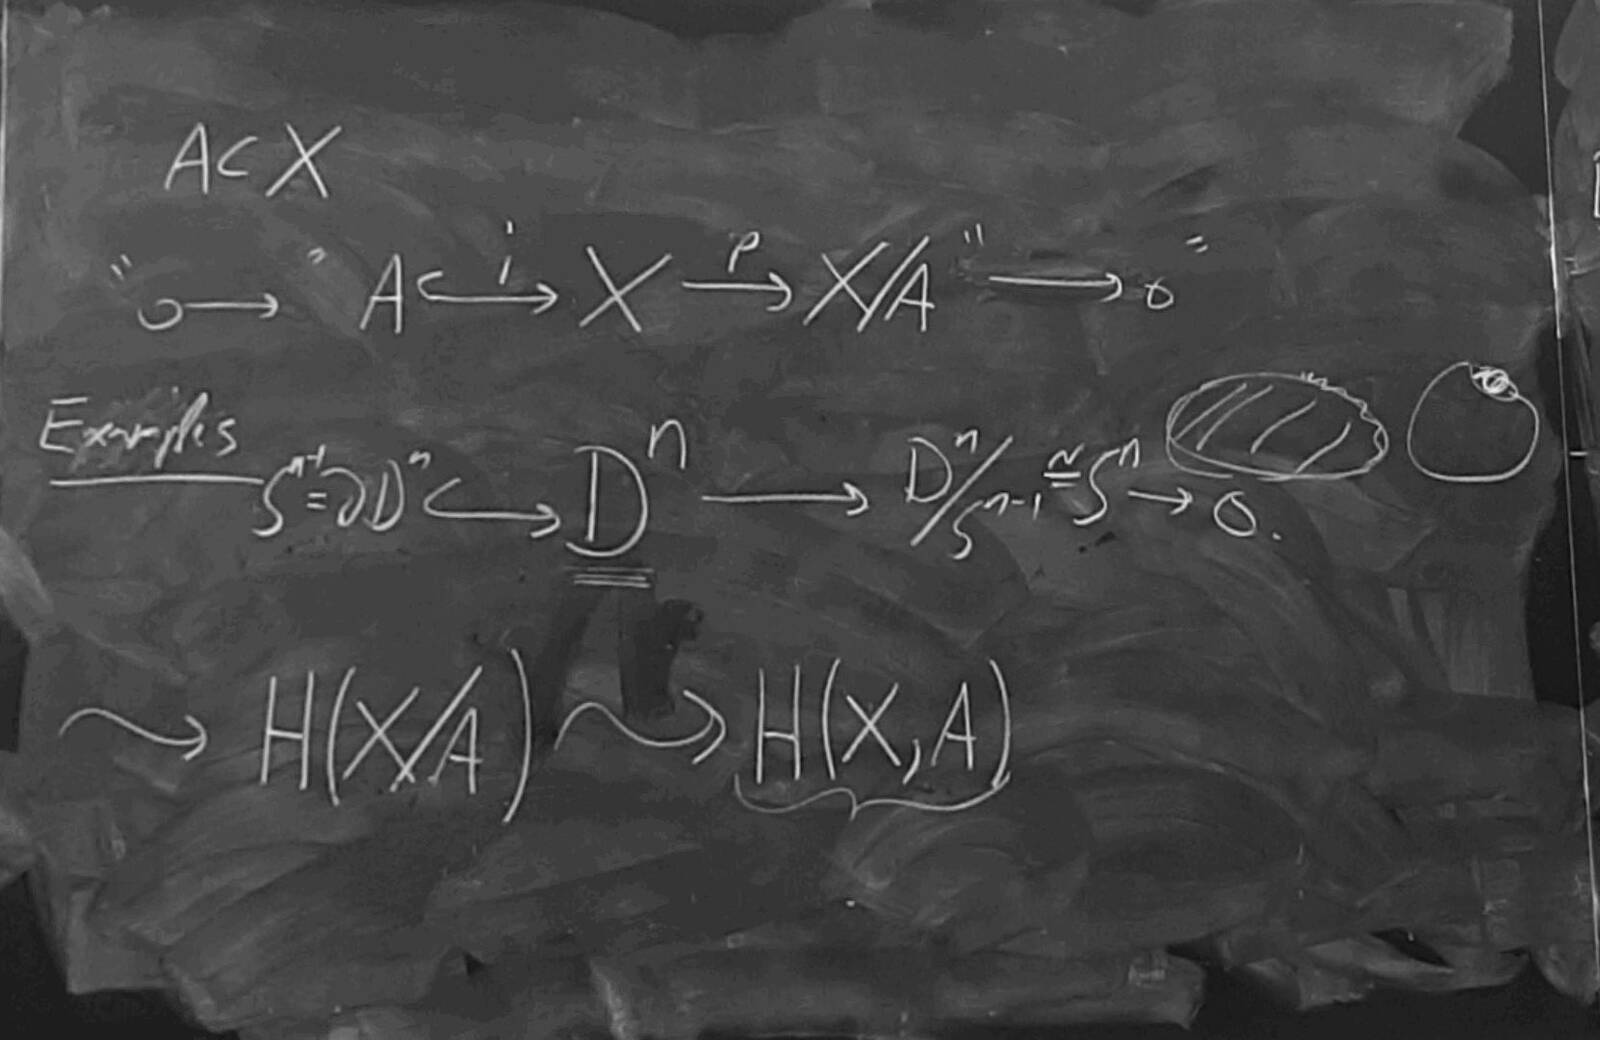 A ⊂ X
"0 ⟶ " A ↪ X ⟶ X/A " ⟶ 0 "
i p
Examples
S^{n-1} = ∂D^n ↪ D^n ⟶ D^n/S^{n-1} ≅ S^n → 0.
⇝ H(X/A) ⇝ H(X, A)